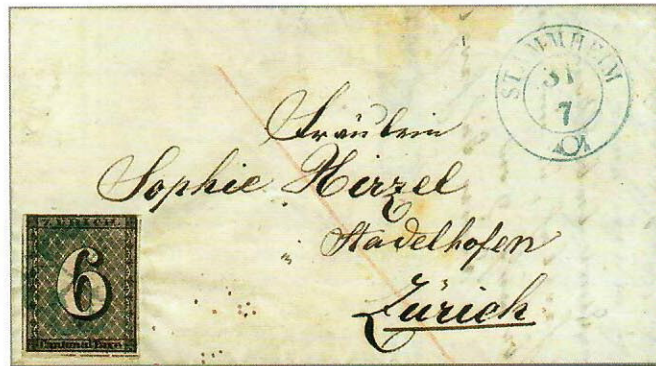 STAMMHEIM
31
7
Fräulein
Sophie Hirzel
Stadelhofen
Zürich
ZÜRICH
6
Cantonal-Taxe